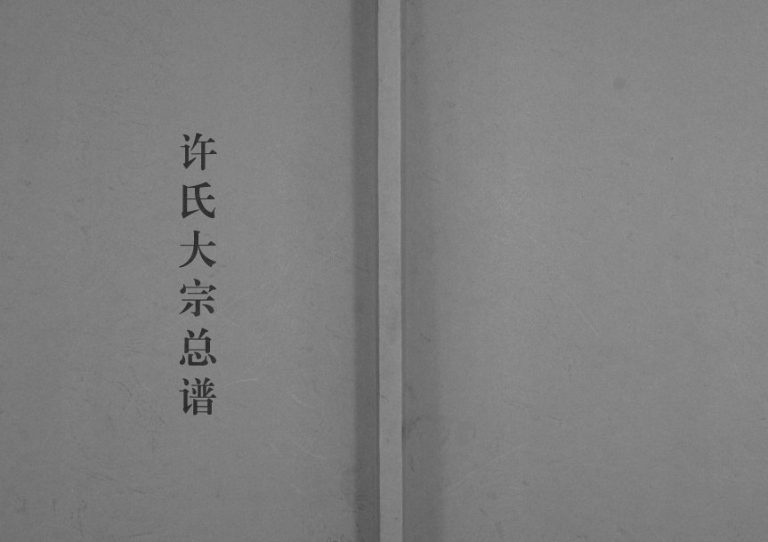 许氏大宗总谱